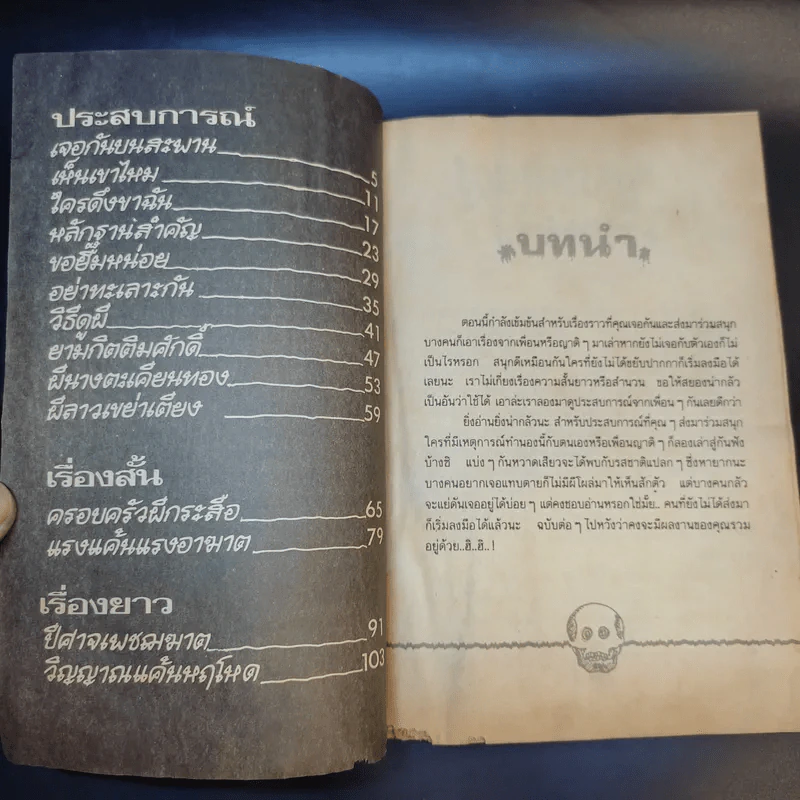 ประสบการณ์
เจอกันบนสะพาน 5
เห็นเขาไหม 11
ใครดึงขาฉัน 17
หลักฐานสำคัญ 23
ขอยืมหน่อย 29
อย่าทะเลาะกัน 35
วิธีดูผี 41
ยามกิตติมศักดิ์ 47
ผีนางตะเคียนทอง 53
ผีลาวเขย่าเตียง 59
เรื่องสั้น
ครอบครัวผีกระสือ 65
แรงแค้นแรงอาฆาต 79
เรื่องยาว
ปีศาจเพชฌฆาต 91
วิญญาณแค้นหฤโหด 103
บทนำ
ตอนนี้กำลังเข้มข้นสำหรับเรื่องราวที่คุณเจอกันและส่งมาร่วมสนุก
บางคนก็เอาเรื่องจากเพื่อนหรือญาติ ๆ มาเล่าหากยังไม่เจอกับตัวเองก็ไม่
เป็นไรหรอก สนุกดีเหมือนกันใครที่ยังไม่ได้ขยับปากกาก็เริ่มลงมือได้
เลยนะ เราไม่เกี่ยงเรื่องความสั้นยาวหรือสำนวน ขอให้สยองน่ากลัว
เป็นอันว่าใช้ได้ เอาล่ะเราลองมาดูประสบการณ์จากเพื่อน ๆ กันเลยดีกว่า
ยิ่งอ่านยิ่งน่ากลัวนะ สำหรับประสบการณ์ที่คุณ ๆ ส่งมาร่วมสนุก
ใครที่มีเหตุการณ์ทำนองนี้กับตนเองหรือเพื่อนญาติ ๆ ก็ลองเล่าสู่กันฟัง
บ้างซิ แบ่ง ๆ กันหวาดเสียวจะได้พบกับรสชาติแปลก ๆ ซึ่งหายากนะ
บางคนอยากเจอแทบตายก็ไม่มีผีโผล่มาให้เห็นสักตัว แต่บางคนกลัว
จะแย่ดันเจออยู่ได้บ่อย ๆ แต่คงชอบอ่านหรอกใช่มั้ย.. คนที่ยังไม่ได้ส่งมา
ก็เริ่มลงมือได้แล้วนะ ฉบับต่อ ๆ ไปหวังว่าคงจะมีผลงานของคุณรวม
อยู่ด้วย..ฮิ..ฮิ.. !